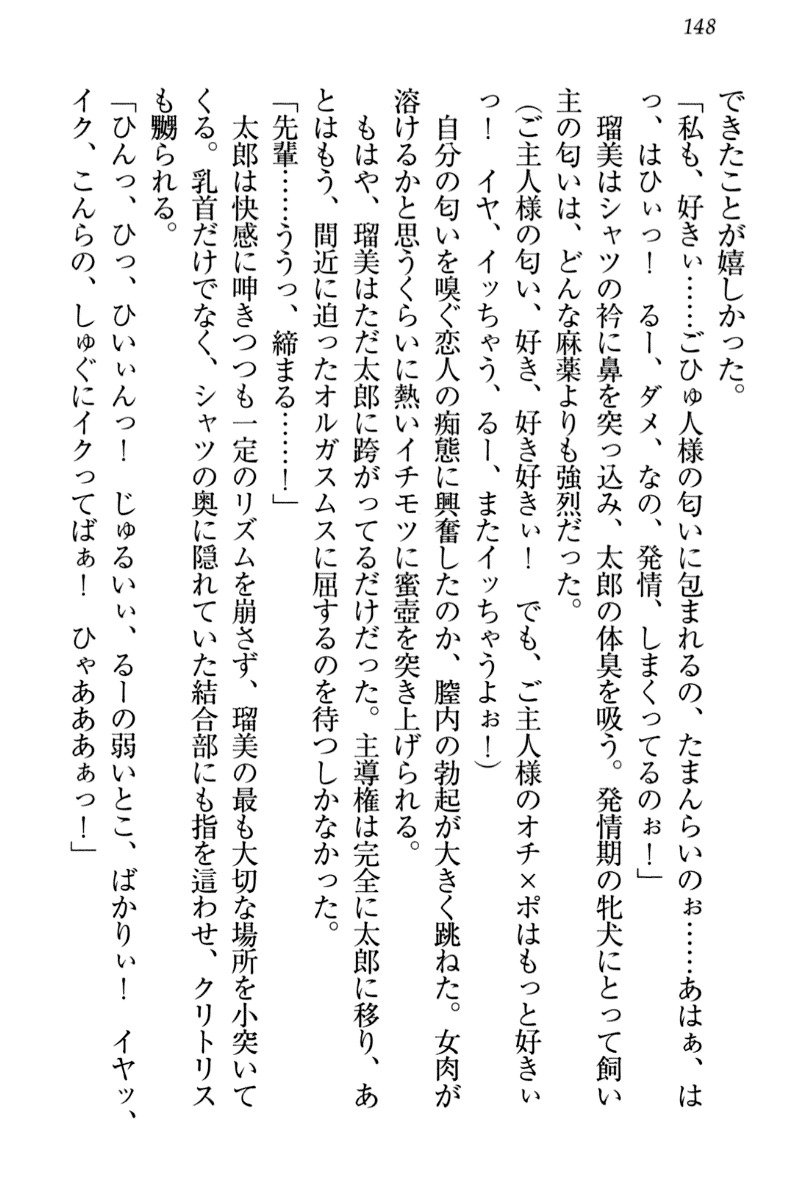 148
できたことが嬉しかった。
「私も、好きぃ……ごひゅ人様の匂いに包まれるの、たまんらいのぉ……あはぁ、は
っ、はひぃっ！　るー、ダメ、なの、発情、しまくってるのぉ！」
　瑠美はシャツの衿に鼻を突っ込み、太郎の体臭を吸う。発情期の牝犬にとって飼い
主の匂いは、どんな麻薬よりも強烈だった。
（ご主人様の匂い、好き、好き好きぃ！　でも、ご主人様のオチ×ポはもっと好きぃ
っ！　イヤ、イッちゃう、るー、またイッちゃうよぉ！）
　自分の匂いを嗅ぐ恋人の痴態に興奮したのか、膣内の勃起が大きく跳ねた。女肉が
溶けるかと思うくらいに熱いイチモツに蜜壺を突き上げられる。
　もはや、瑠美はただ太郎に跨がってるだけだった。主導権は完全に太郎に移り、あ
とはもう、間近に迫ったオルガスムスに屈するのを待つしかなかった。
「先輩……ううっ、締まる……！」
　太郎は快感に呻きつつも一定のリズムを崩さず、瑠美の最も大切な場所を小突いて
くる。乳首だけでなく、シャツの奥に隠れていた結合部にも指を這わせ、クリトリス
も嬲られる。
「ひんっ、ひっ、ひいぃんっ！　じゅるいぃ、るーの弱いとこ、ばかりぃ！　イヤッ、
イク、こんらの、しゅぐにイクってばぁ！　ひゃあああぁっ！」